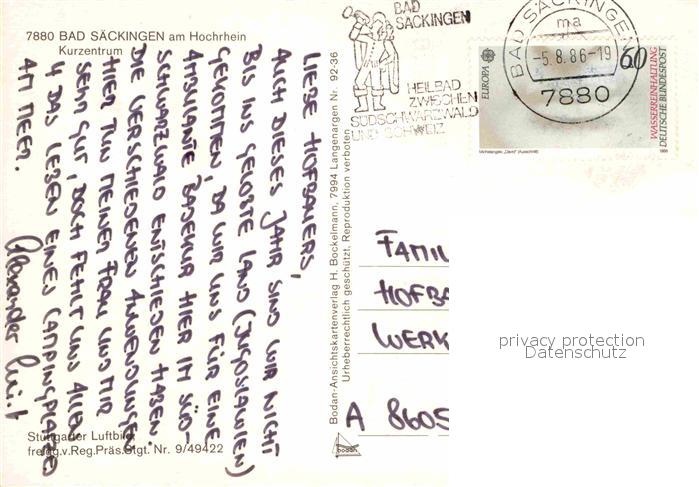 7880 BAD SÄCKINGEN am Hochrhein
Kurzentrum
LIEBE HOFBAUERS,
AUCH DIESES JAHR SIND WIR NICHT
BIS INS GELOBTE LAND (JUGOSLAWIEN)
GEKOMMEN, DA WIR UNS FÜR EINE
AMBULANTE BADEKUR HIER IM SÜD-
SCHWARZWALD ENTSCHIEDEN HABEN.
DIE VERSCHIEDENEN ANWENDUNGEN
HIER TUN MEINER FRAU UND MIR
SEHR GUT, DOCH FEHLT UNS ALLEN
4 DAS LEBEN EINES CAMPINGPLATZES
AM MEER.
Alexander
Stuttgarter Luftbild
freigg.v.Reg.Präs.Stgt. Nr. 9/49422
Bodan-Ansichtskartenverlag H. Bockelmann, 7994 Langenargen Nr. 92-36
Urheberrechtlich geschützt, Reproduktion verboten
bodan
BAD
SÄCKINGEN
HEILBAD
ZWISCHEN
SÜDSCHWARZWALD
UND SCHWEIZ
BAD SÄCKINGEN
ma
-5.8.86-19
7880
EUROPA
60
WASSERREINHALTUNG
DEUTSCHE BUNDESPOST
Michelangelo, „David" (Ausschnitt)
1986
FAMIL
HOFBA
WERK
A 8605
privacy protection
Datenschutz